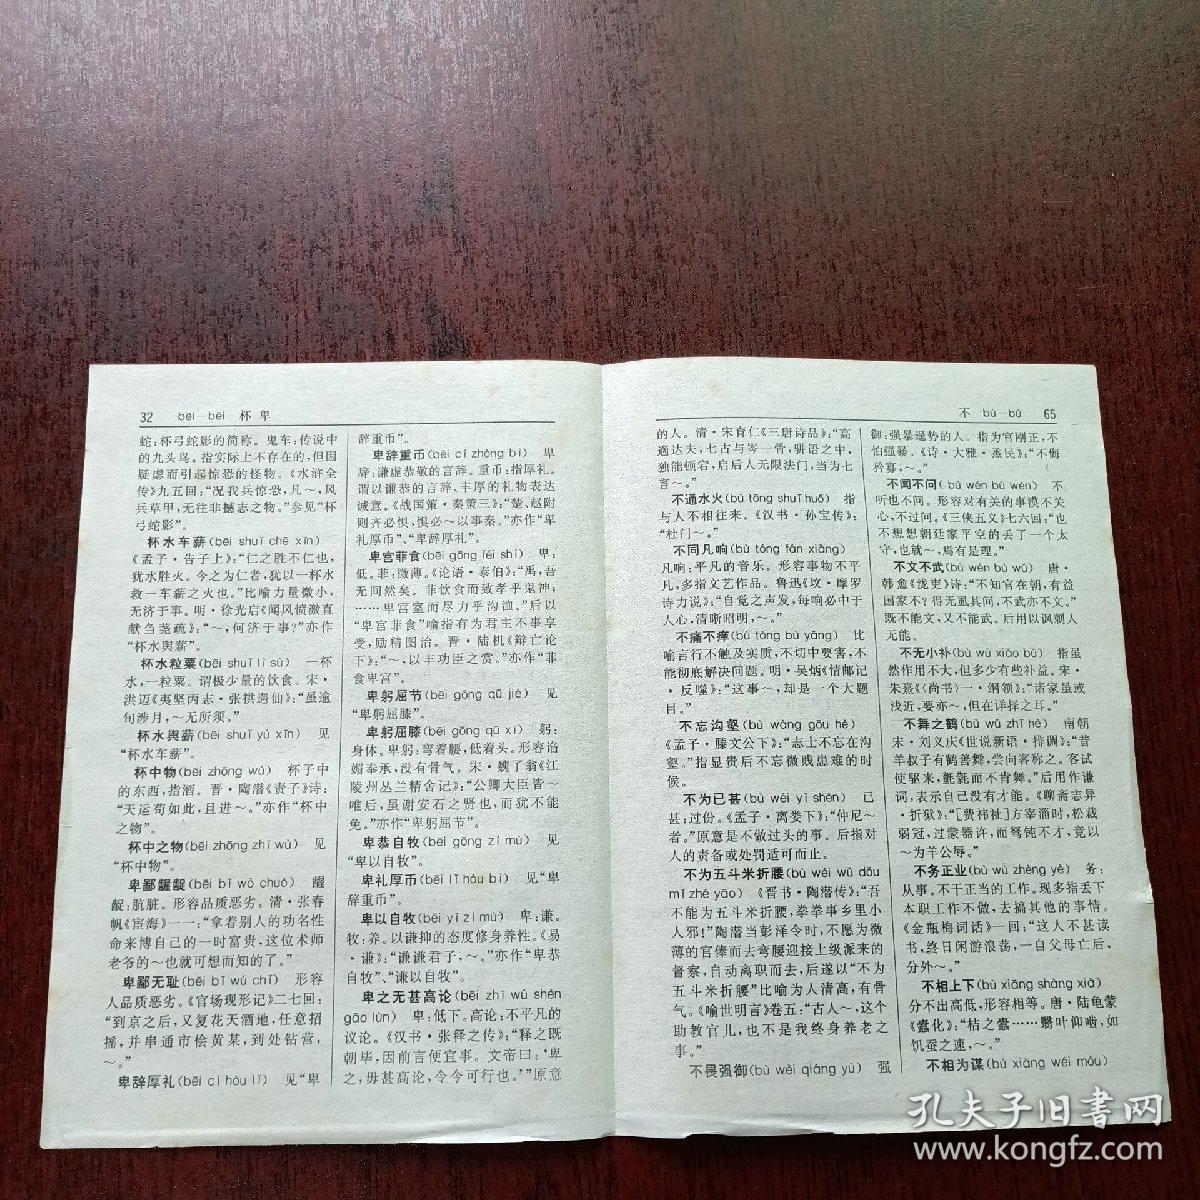 32 bēi—bēi 杯 卑
蛇:杯弓蛇影的简称。鬼车:传说中
的九头鸟。指实际上不存在的,但因
疑虑而引起惊恐的怪物。《水浒全
传》九五回:“况我兵惊恐,凡～,风
兵草甲,无往非撼志之物。”参见“杯
弓蛇影”。
杯水车薪(bēi shuǐ chē xīn)
《孟子·告子上》:“仁之胜不仁也,
犹水胜火。今之为仁者,犹以一杯水
救一车薪之火也。”比喻力量微小,
无济于事。明·徐光启《闻风愤激直
献刍荛疏》:“～,何济于事?”亦作
“杯水舆薪”。
杯水粒粟(bēi shuǐ lì sù) 一杯
水,一粒粟。谓极少量的饮食。宋·
洪迈《夷坚丙志·张拱遇仙》:“虽逾
旬涉月,～无所须。”
杯水舆薪(bēi shuǐ yú xīn) 见
“杯水车薪”。
杯中物(bēi zhōng wù) 杯子中
的东西,指酒。晋·陶潜《责子》诗:
“天运苟如此,且进～。”亦作“杯中
之物”。
杯中之物(bēi zhōng zhī wù) 见
“杯中物”。
卑鄙龌龊(bēi bǐ wò chuò) 龌
龊:肮脏。形容品质恶劣。清·张春
帆《宦海》一一:“拿着别人的功名性
命来博自己的一时富贵,这位术师
老爷的～也就可想而知的了。”
卑鄙无耻(bēi bǐ wú chǐ) 形容
人品质恶劣。《官场现形记》二七回:
“到京之后,又复花天酒地,任意招
摇,并串通市侩黄某,到处钻营,
～。”
卑辞厚礼(bēi cí hòu lǐ) 见“卑
辞重币”。
卑辞重币(bēi cí zhòng bì) 卑
辞:谦虚恭敬的言辞。重币:指厚礼。
谓以谦恭的言辞、丰厚的礼物表达
诚意。《战国策·秦策三》:“楚、赵附
则齐必惧,惧必～以事秦。”亦作“卑
礼厚币”、“卑辞厚礼”。
卑宫菲食(bēi gōng fěi shí) 卑:
低。菲:微薄。《论语·泰伯》:“禹,吾
无间然矣。菲饮食而致孝乎鬼神;
……卑宫室而尽力乎沟洫。”后以
“卑宫菲食”喻指有为君主不事享
受,励精图治。晋·陆机《辩亡论
下》:“～,以丰功臣之赏。”亦作“菲
食卑宫”。
卑躬屈节(bēi gōng qū jié) 见
“卑躬屈膝”。
卑躬屈膝(bēi gōng qū xī) 躬:
身体。卑躬:弯着腰,低着头。形容谄
媚奉承,没有骨气。宋·魏了翁《江
陵州丛兰精舍记》:“公卿大臣皆～
唯后,虽谢安石之贤也,而犹不能
免。”亦作“卑躬屈节”。
卑恭自牧(bēi gōng zì mù) 见
“卑以自牧”。
卑礼厚币(bēi lǐ hòu bì) 见“卑
辞重币”。
卑以自牧(bēi yǐ zì mù) 卑:谦。
牧:养。以谦抑的态度修身养性。《易
·谦》:“谦谦君子,～。”亦作“卑恭
自牧”、“谦以自牧”。
卑之无甚高论(bēi zhī wú shèn
gāo lùn) 卑:低下。高论:不平凡的
议论。《汉书·张释之传》:“释之既
朝毕,因前言便宜事。文帝曰:‘卑
之,毋甚高论,令今可行也。’”原意
不 bù—bù 65
的人。清·宋育仁《三唐诗品》:“高
適达夫,七古与岑一骨,骈语之中,
独能顿宕,启后人无限法门,当为七
言～。”
不通水火(bù tōng shuǐ huǒ) 指
与人不相往来。《汉书·孙宝传》:
“杜门～。”
不同凡响(bù tóng fán xiǎng)
凡响:平凡的音乐。形容事物不平
凡,多指文艺作品。鲁迅《坟·摩罗
诗力说》:“自觉之声发,每响必中于
人心,清晰昭明,～。”
不痛不痒(bù tòng bù yǎng) 比
喻言行不触及实质,不切中要害,不
能彻底解决问题。明·吴炳《情邮记
·反噬》:“这事～,却是一个大题
目。”
不忘沟壑(bù wàng gōu hè)
《孟子·滕文公下》:“志士不忘在沟
壑。”指显贵后不忘微贱患难的时
候。
不为已甚(bù wéi yǐ shèn) 已
甚:过份。《孟子·离娄下》:“仲尼～
者。”原意是不做过头的事。后指对
人的责备或处罚适可而止。
不为五斗米折腰(bù wèi wǔ dǒu
mǐ zhé yāo) 《晋书·陶潜传》:“吾
不能为五斗米折腰,拳拳事乡里小
人邪!”陶潜当彭泽令时,不愿为微
薄的官俸而去弯腰迎接上级派来的
督察,自动离职而去,后遂以“不为
五斗米折腰”比喻为人清高,有骨
气。《喻世明言》卷五:“古人～,这个
助教官儿,也不是我终身养老之
事。”
不畏强御(bù wèi qiáng yù) 强
御:强暴逞势的人。指为官刚正,不
怕强暴。《诗·大雅·烝民》:“不侮
矜寡,～。”
不闻不问(bù wén bù wèn) 不
听也不问。形容对有关的事漠不关
心,不过问。《三侠五义》七六回:“也
不想想朝廷家平空的丢了一个太
守,也就～,焉有是理。”
不文不武(bù wén bù wǔ) 唐·
韩愈《泷吏》诗:“不知官在朝,有益
国家不?得无虱其间,不武亦不文。”
既不能文,又不能武。后用以讽刺人
无能。
不无小补(bù wú xiǎo bǔ) 指虽
然作用不大,但多少有些补益。宋·
朱熹《〈尚书〉一·纲领》:“诸家虽或
浅近,要亦～,但在详择之耳。”
不舞之鹤(bù wǔ zhī hè) 南朝
宋·刘义庆《世说新语·排调》:“昔
羊叔子有鹤善舞,尝向客称之。客试
使驱来,氃氋而不肯舞。”后用作谦
词,表示自己没有才能。《聊斋志异
·折狱》:“[费祎祉]方宰淄时,松裁
弱冠,过蒙器许,而驽钝不才,竟以
～为羊公辱。”
不务正业(bù wù zhèng yè) 务:
从事。不干正当的工作。现多指丢下
本职工作不做,去搞其他的事情。
《金瓶梅词话》一回:“这人不甚读
书,终日闲游浪荡,一自父母亡后,
分外～。”
不相上下(bù xiāng shàng xià)
分不出高低,形容相等。唐·陆龟蒙
《蠹化》:“桔之蠹……翳叶仰啮,如
饥蚕之速,～。”
不相为谋(bù xiāng wéi móu)
孔夫子旧书网
www.kongfz.com